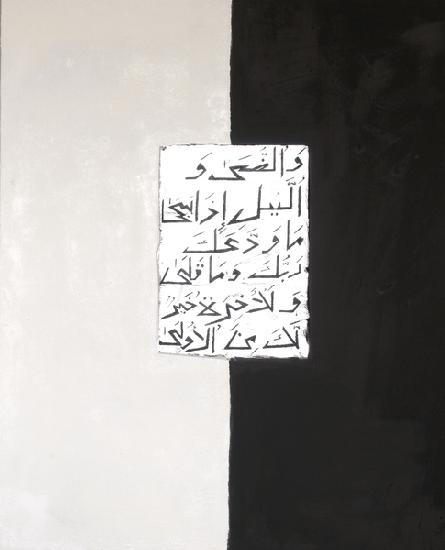 وَالضُّحَىٰ وَ
الَّيْلِ إِذَا سَجَىٰ
مَا وَدَّعَكَ
رَبُّكَ وَمَا قَلَىٰ
وَلَلْأَخِرَةُ خَيْرٌ
لَّكَ مِنَ الْأُولَىٰ